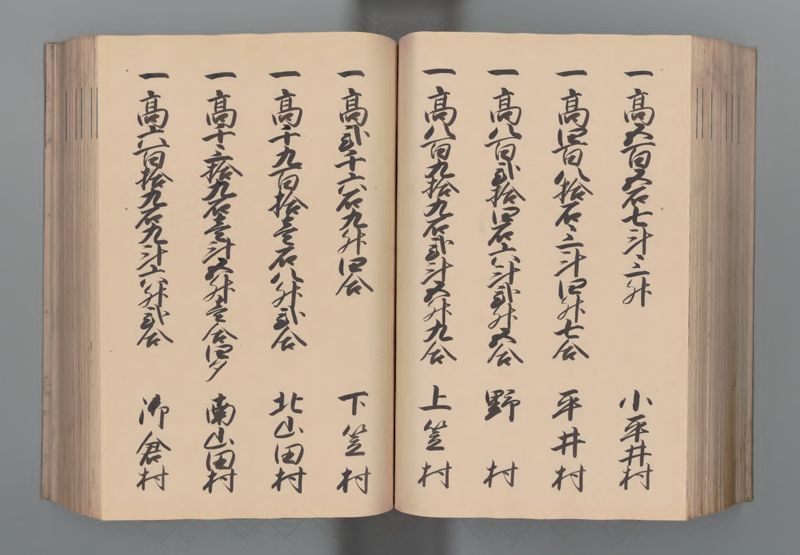 一高五百五石七斗三升 小平井村
一高四百八拾石三斗四升七合 平井村
一高八百弐拾四石六斗弐升五合 野村
一高八百九拾九石弐斗五升九合 上笠村
一高弐千六石九升四合 下笠村
一高千九百拾壱石八升弐合 北山田村
一高千三拾九石壱斗五升壱合四夕 南山田村
一高六百拾九石九斗六升弐合 御倉村